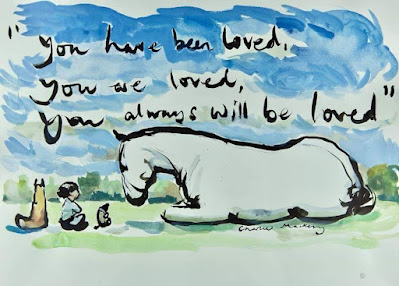 "you have been loved,
you are loved,
you always will be loved"
Charlie Mackesy